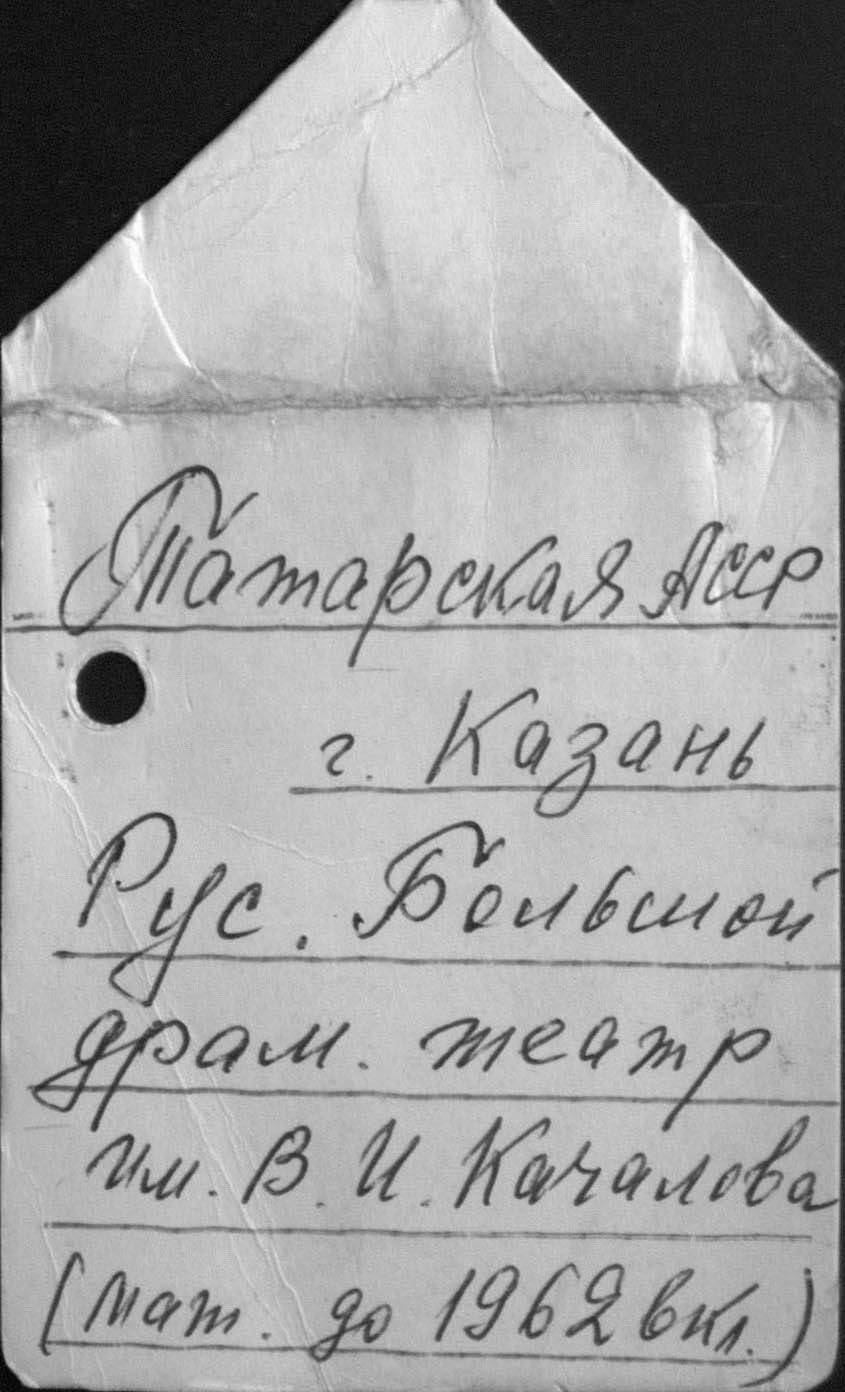 Татарская АССР
г. Казань
Рус. Большой
драм. театр
им. В. И. Качалова
(мат. до 1962 вкл.)